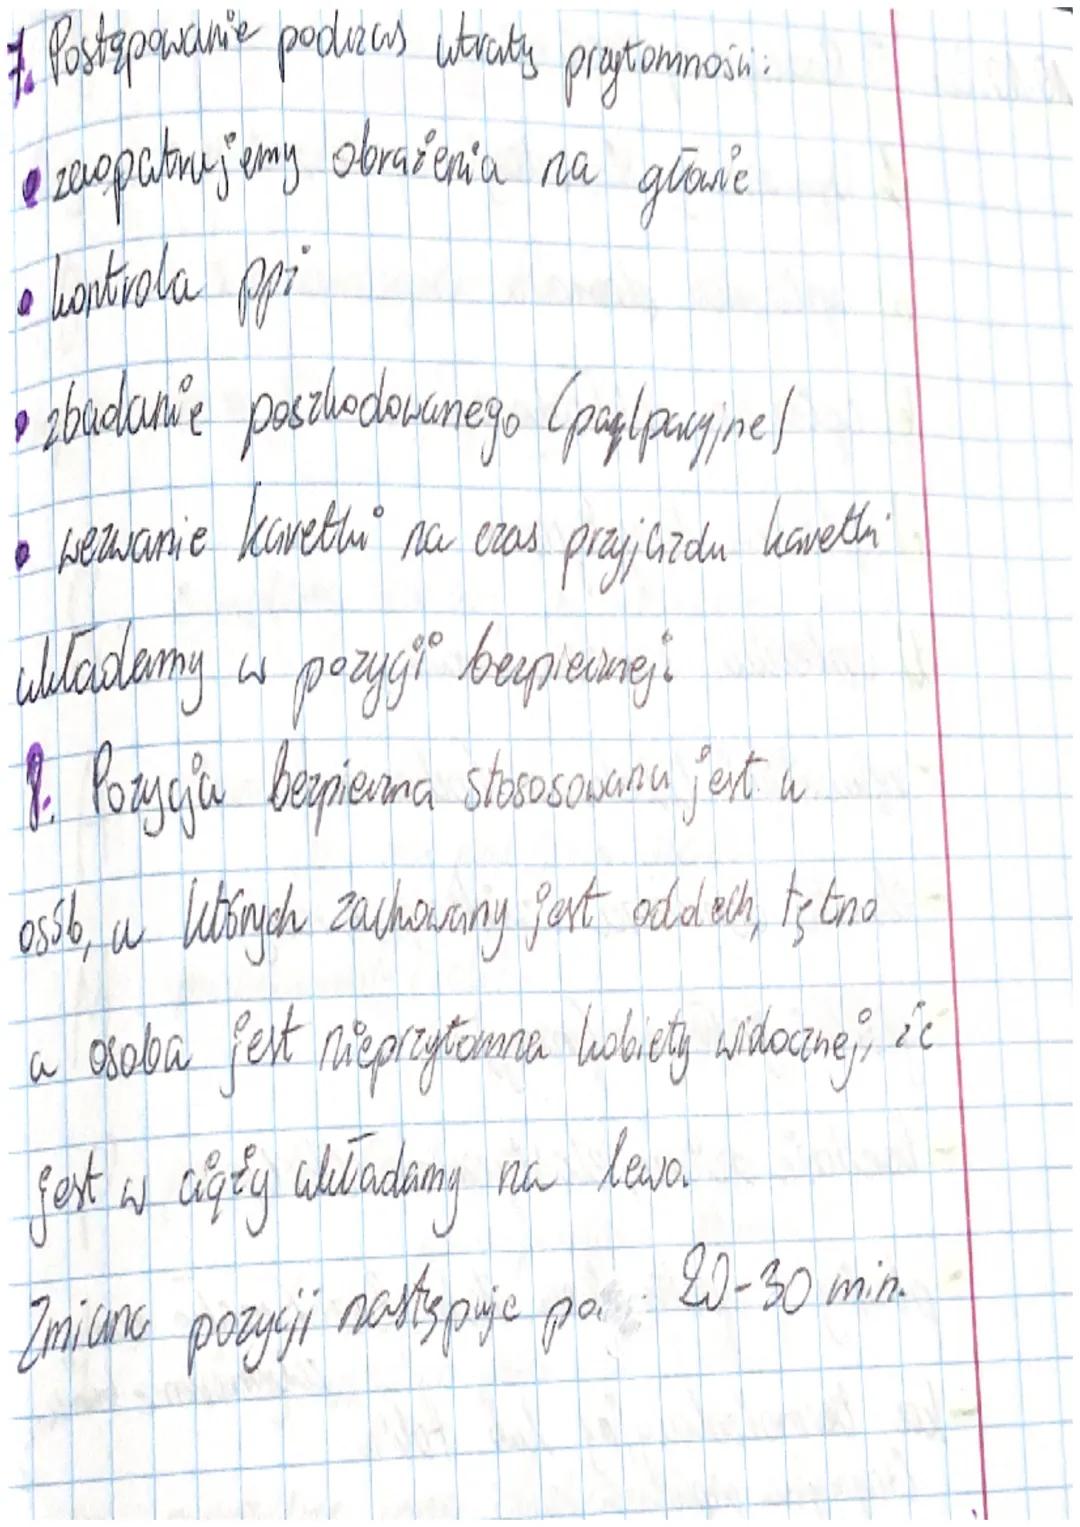 7. Postępowanie podczas utraty przytomności:
• zaopatrujemy obrażenia na głowie
• kontrola ppi
• zbadanie poszkodowanego (palpacyjne)
• wezwanie karetki na czas przyjazdu karetki
układamy w pozycji bezpiecznej.
8. Pozycja bezpieczna stososowana jest u
osób, u których zachowany jest oddech, tętno
a osoba jest nieprzytomna kobiety widocznej, że
jest w ciąży układamy na lewo.
Zmiana pozycji następuje po 20-30 min.